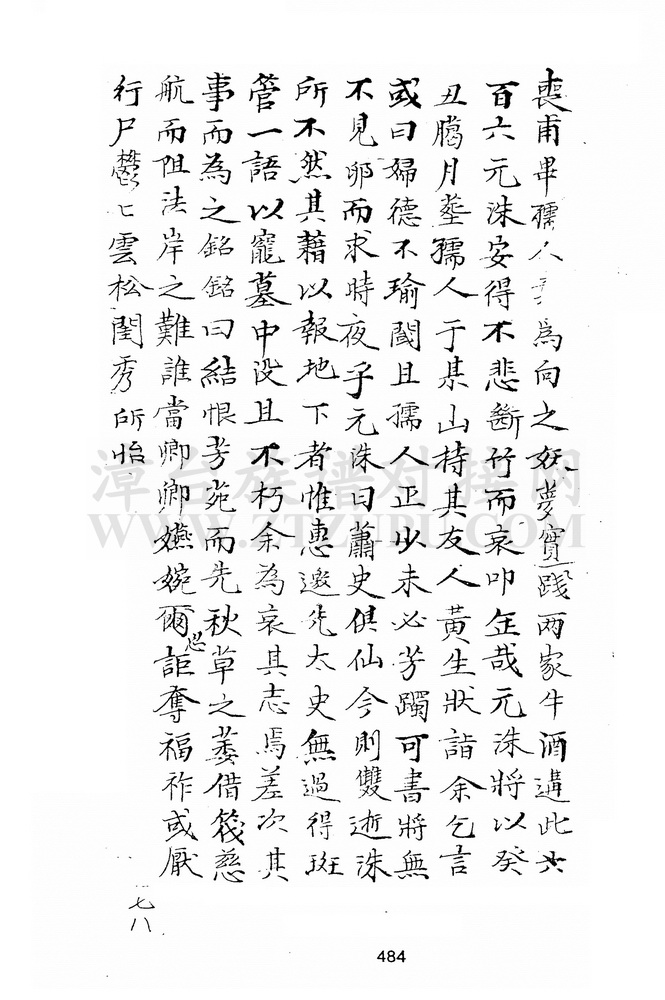 喪甫畢孺人為向之妖夢實踐兩家牛酒遘此六
百六元洙安得不悲斷竹而哀叩缶哉元洙將以癸
丑臈月塟孺人于某山持其友人黃生狀詣余乞言
或曰婦德不瑜閾且孺人正少未必芳躅可書將無
不見卵而求時夜乎元洙曰蕭史俱仙今則雙逝洙
所不然其藉以報地下者惟惠邀先太史無過得斑
管一語以寵墓中没且不朽余為哀其志焉差次其
事而為之銘銘曰結恨芳苑而先秋草之萎借筏慈
航而阻法岸之難誰當卿卿嬿婉爾忌詎奪福祚或厭
行尸鬱匕雲松閨秀所怡
七八
484
潭台族谱对接网
WWW.ZTZUPU.COM